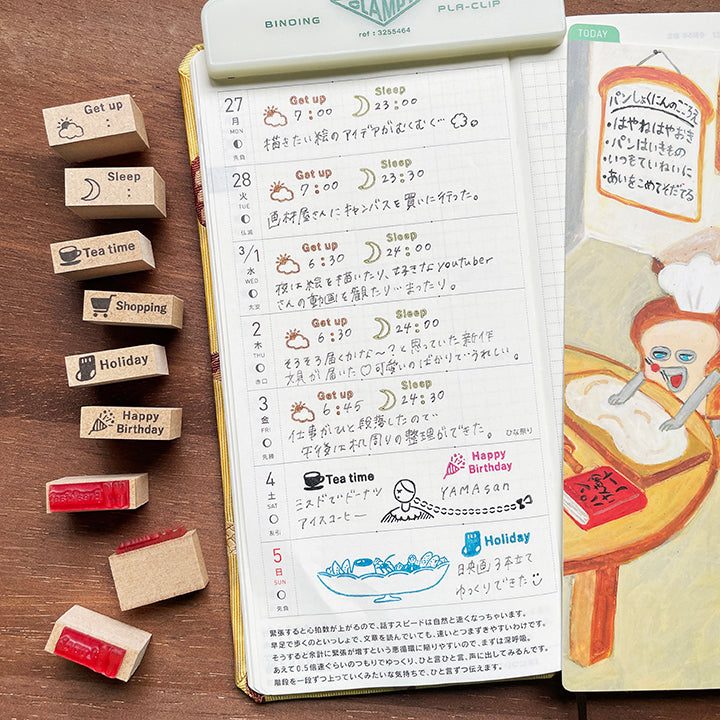 BINDING
CLAMPY
PLA-CLIP
ref : 3255464
Get up
:
Sleep
:
Tea time
Shopping
Holiday
Happy
Birthday
27
月
MON
先負
Get up
7:00
Sleep
23:00
描きたい絵のアイデアがむくむく…
28
火
TUE
仏滅
Get up
7:00
Sleep
23:30
画材屋さんにキャンバスを買いに行った。
3/1
水
WED
大安
Get up
6:30
Sleep
24:00
夜は絵を描いたり、好きなyoutuber
さんの動画を観たり…まったり。
2
木
THU
赤口
Get up
6:30
Sleep
24:00
そろそろ届くかな〜?と思っていた新作
文具が届いた♡可愛いのばかりでうれしい。
3
金
FRI
先勝
Get up
6:45
Sleep
24:30
仕事がひと段落したので
午後は机周りの整理ができた。
ひな祭り
4
土
SAT
友引
Tea time
ミスドでドーナツ
アイスコーヒー
Happy
Birthday
YAMAsan
5
日
SUN
先負
Holiday
日映画3本立て
ゆっくりできた
緊張すると心拍数が上がるので、話すスピードは自然と速くなっちゃいます。
早足で歩くのといっしょで、文章を読んでいても、速いとつまずきやすいわけです。
そうすると余計に緊張が増すという悪循環に陥りやすいので、まずは深呼吸。
あえて0.5倍速ぐらいのつもりでゆっくり、ひと言ひと言、声に出してみるんです。
階段を一段ずつ上っていくみたいな気持ちで、ひと言ずつ伝えます。
TODAY
パンしょくにんのこころえ
・はやねはやおき
・パンはいきもの
・いつもていねいに
・あいをこめてそだてる